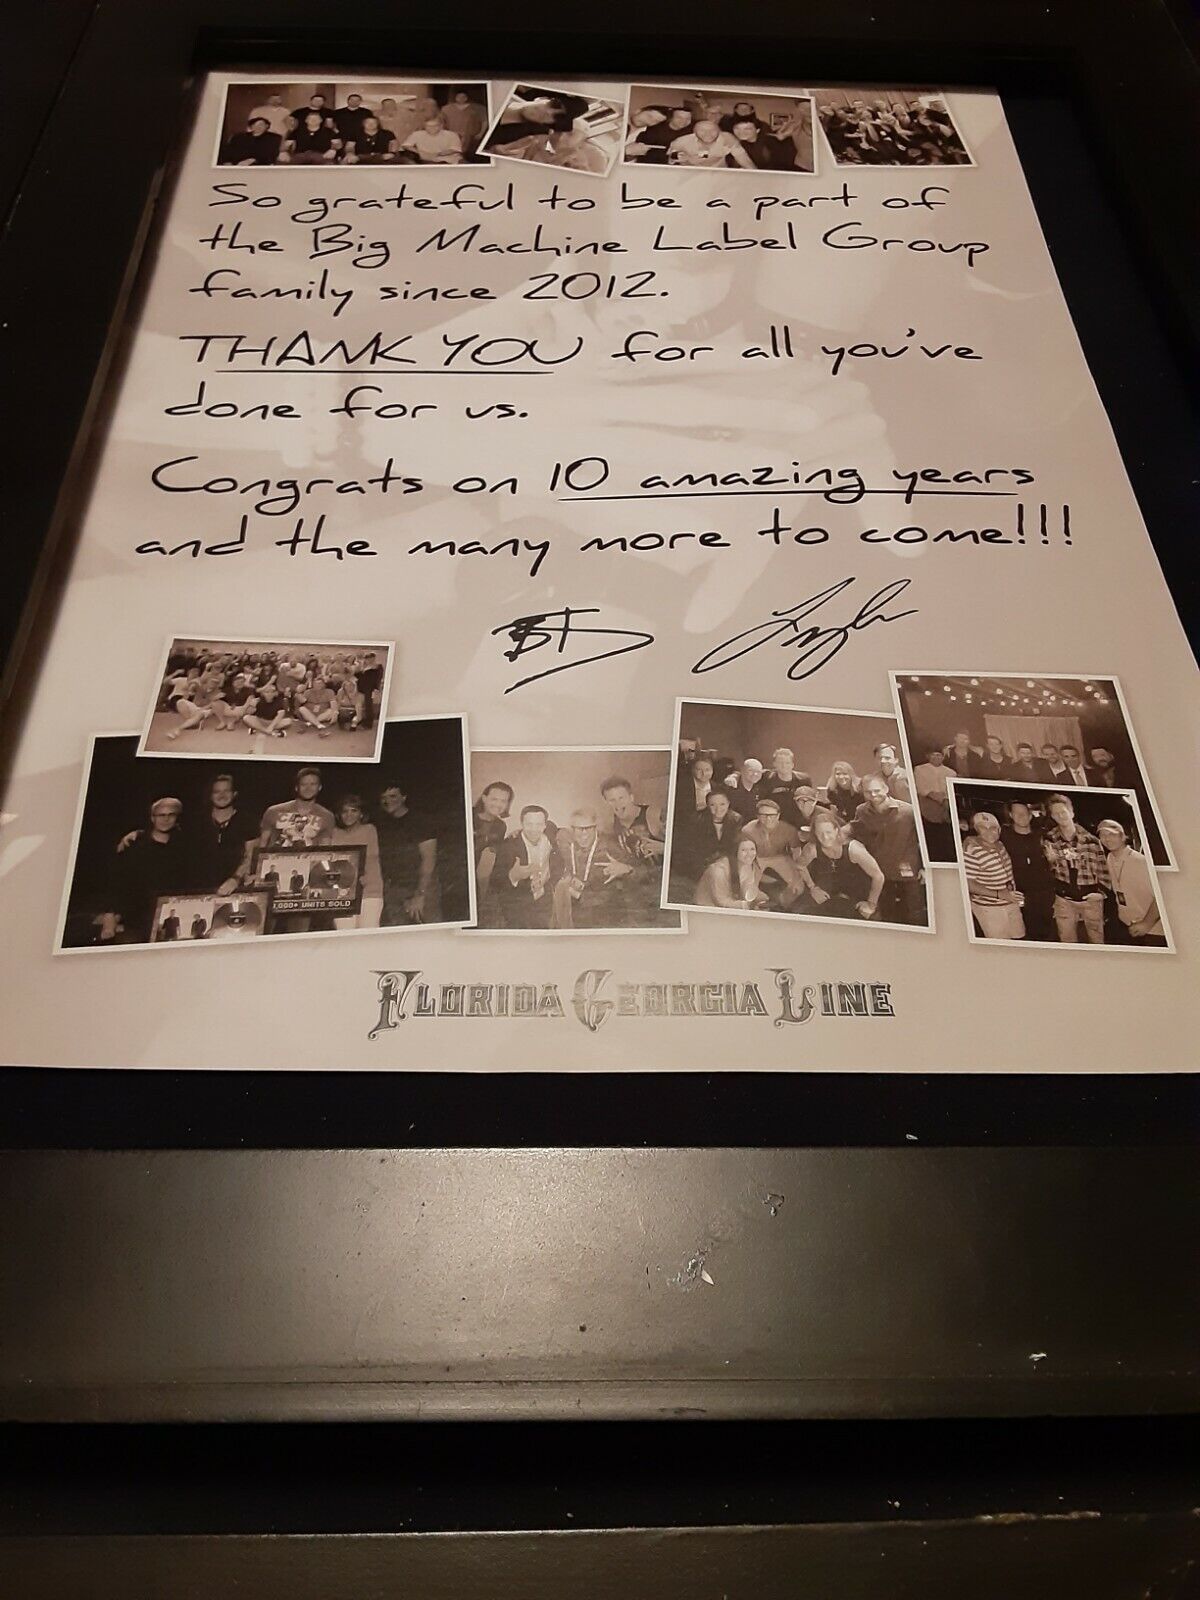 So grateful to be a part of
the Big Machine Label Group
family since 2012.
THANK YOU for all you've
done for us.
Congrats on 10 amazing years
and the many more to come!!!
000+ UNITS SOLD
FLORIDA GEORGIA LINE